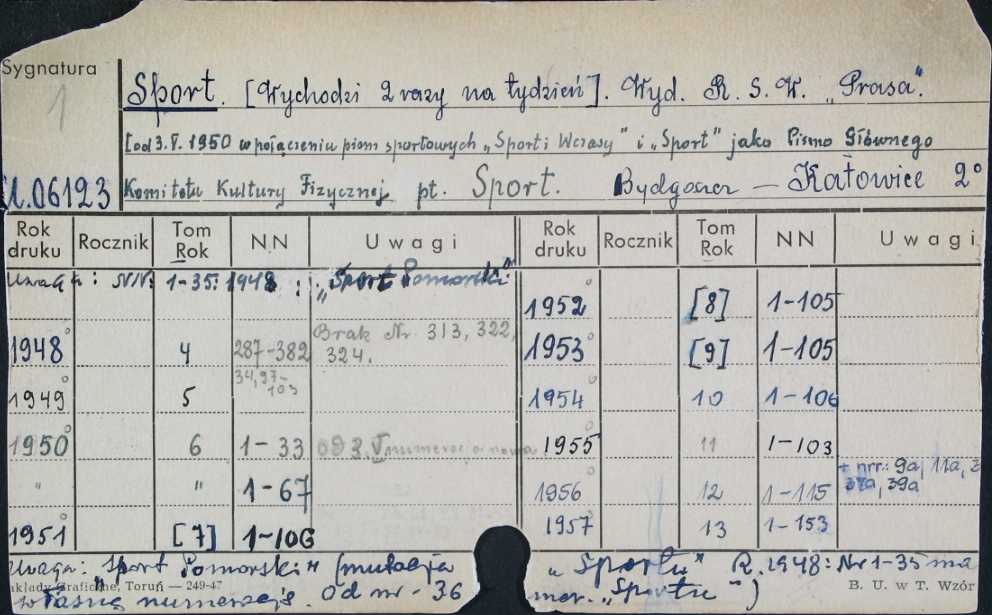 Sygnatura
1
Sport. [Wychodzi 2 razy na tydzień]. Wyd. R. S. W. „Prasa".
[od 3.V.1950 w połączeniu pism sportowych „Sport i Wczasy" i „Sport" jako Pismo Głównego
06123 Komitetu Kultury Fizycznej pt. Sport. Bydgoszcz — Katowice 2°
Rok druku Rocznik Tom Rok NN Uwagi Rok druku Rocznik Tom Rok NN Uwagi
Uwaga: NN: 1-35: 1948: „Sport Pomorski"
1952 [8] 1-105
1948 4 287-382 Brak Nr 313, 322, 324. 1953 [9] 1-105
1949 5 34,97-103 1954 10 1-106
1950 6 1-33 od 3.V numeracja nowa 1955 11 1-103
" " 1-67 1956 12 1-115 + nrr.: 9a, 11a, 37a, 39a
1951 [7] 1-106 1957 13 1-153
Uwaga: „Sport Pomorski" (mutacja „Sportu" R. 1948: Nr 1-35 ma
własną numerację. Od nr. 36 „Sportu")
akłady Graficzne, Toruń — 249-47 B. U. w T. Wzór